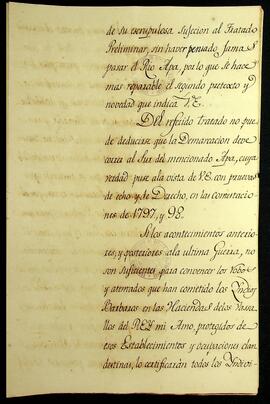 de su escrupulosa sujecion al Tratado
Preliminar, sin haver pensado jamas
pasar el Rio Apa, por lo que se hace
mas reparable el segundo pretexto y
novedad que indica V.E.
Del referido tratado no pue-
de deducirse que la Demarcacion deve
correr al Sur del mencionado Apa, cuya
verdad puse ala vista de V.E. con pruevas
de echo y de Derecho, en las contestacio-
nes de 1797, y 98.
Si los acontecimientos anterio-
res, y posteriores ala ultima Guerra, no
son suficientes para convencer los robos
y atentados que han cometido los Yndios
Barbaros en las Haciendas delos Vasa-
llos del REY mi Amo, protegidos de
Establecimientos y ocupaciones clan-
destinas, lo certificarán todos los